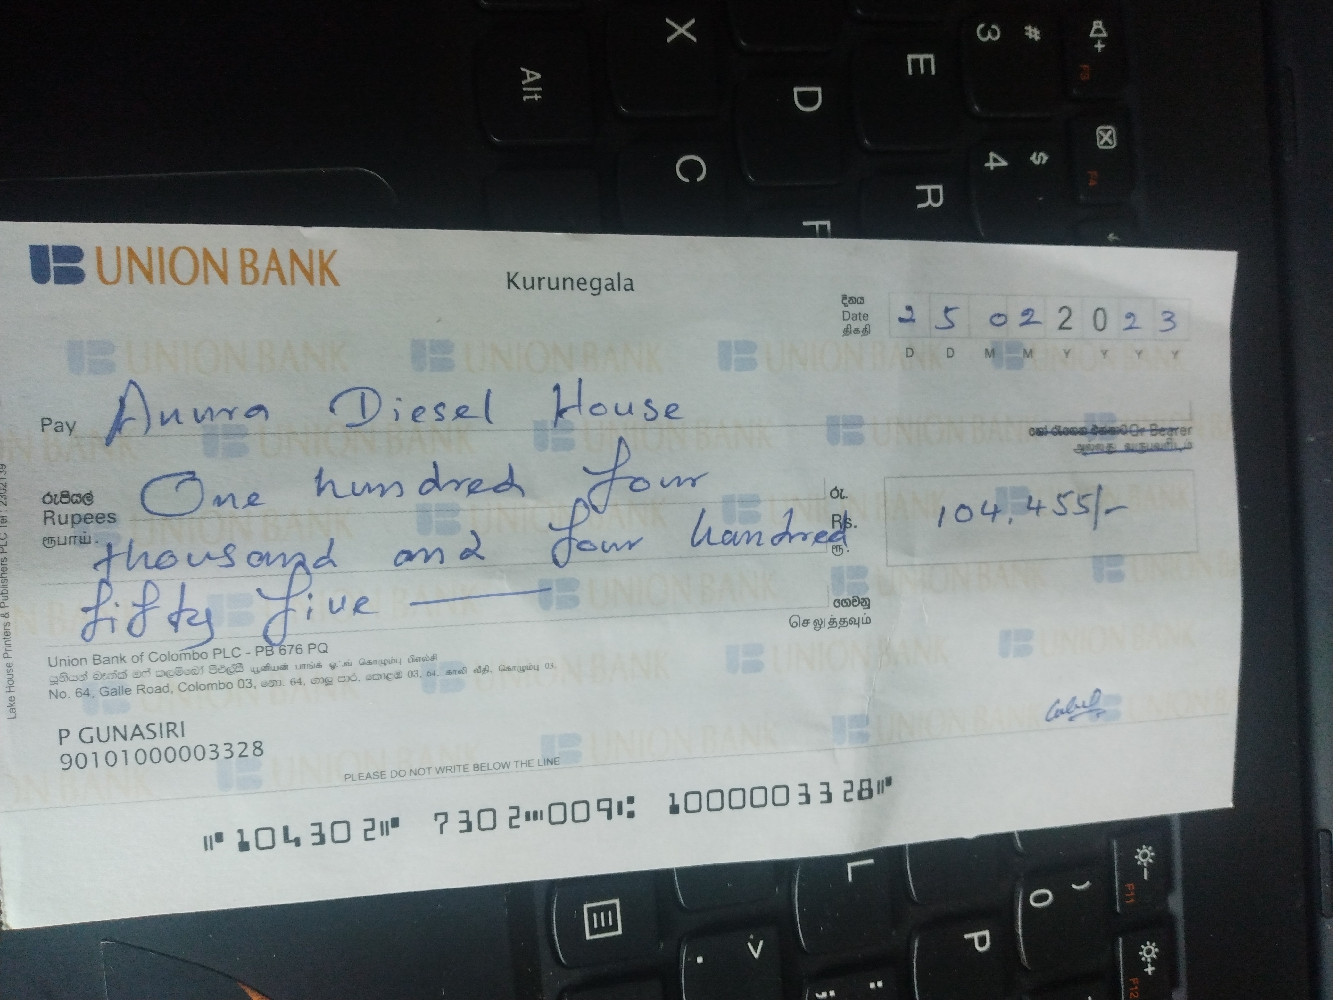 UNION BANK
Kurunegala
දිනය
Date
திகதி
2 5 0 2 2 0 2 3
D D M M Y Y Y Y
Pay Anura Diesel House
හෝ රැගෙන එන්නාට Or Bearer
அல்லது வைருபவரிடம்
රුපියල්
Rupees
ரூபாய்
One hundred four
thousand and four hundred
fifty five
රු.
Rs.
ரூ.
104,455/-
ගෙවනු
செலுத்தவும்
Union Bank of Colombo PLC - PB 676 PQ
No. 64, Galle Road, Colombo 03, නො. 64, ගාලු පාර, කොළඹ 03, 64, காலி வீதி, கொழும்பு 03.
P GUNASIRI
90101000003328
PLEASE DO NOT WRITE BELOW THE LINE
⑈104302⑈ 7302⑉009⑆ 1000003328⑈
Lake House Printers & Publishers PLC Tel: 2302139
Alt
X
C
D
F
E
R
# 3
$ 4
F3
F4
L
P
) 0
F11
F12